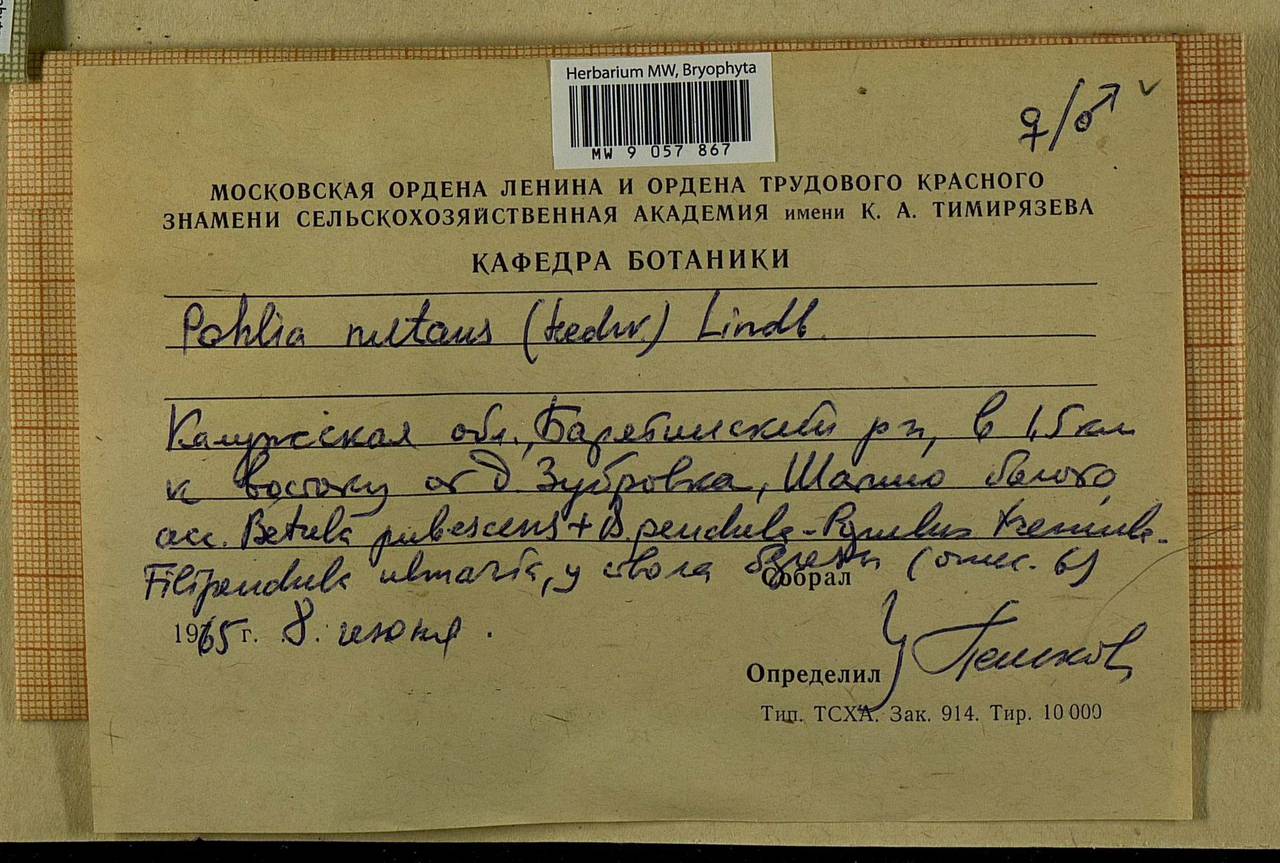 Herbarium MW, Bryophyta
MW 9 057 867
♀/♂
МОСКОВСКАЯ ОРДЕНА ЛЕНИНА И ОРДЕНА ТРУДОВОГО КРАСНОГО
ЗНАМЕНИ СЕЛЬСКОХОЗЯЙСТВЕННАЯ АКАДЕМИЯ имени К. А. ТИМИРЯЗЕВА
КАФЕДРА БОТАНИКИ
Pohlia nutans (Hedw.) Lindb.
Калужская обл., Барятинский р-н, в 1,5 км
к востоку от д. Зубровка, Шатино болото,
асс. Betula pubescens + B. pendula - Populus tremula -
Filipendula ulmaria, у ствола березы (опис. 6)
Собрал
1965 г. 8. июня.
Определил
Тип. ТСХА. Зак. 914. Тир. 10 000